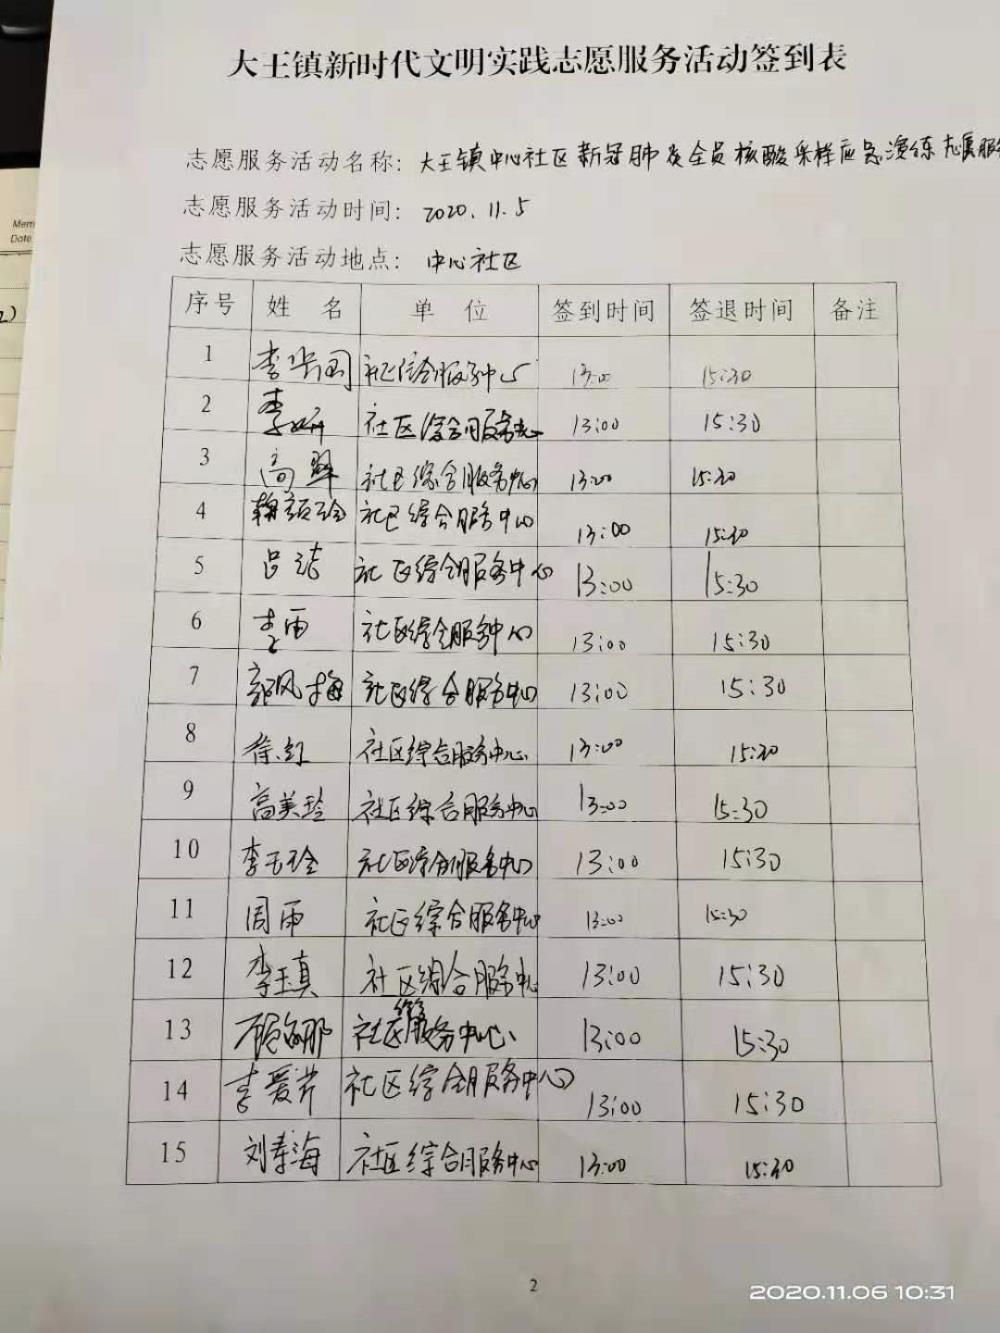 大王镇新时代文明实践志愿服务活动签到表
志愿服务活动名称：大王镇中心社区新冠肺炎全员核酸采样应急演练志愿服务
志愿服务活动时间：2020.11.5
志愿服务活动地点：中心社区
序号 姓 名 单 位 签到时间 签退时间 备注
1 李 社区综合服务中心 13:00 15:30
2 李妍 社区综合服务中心 13:00 15:30
3 高 社区综合服务中心 13:00 15:30
4 社区综合服务中心 13:00 15:30
5 吕洁 社区综合服务中心 13:00 15:30
6 李雨 社区综合服务中心 13:00 15:30
7 郭风梅 社区综合服务中心 13:00 15:30
8 徐红 社区综合服务中心 13:00 15:30
9 高美玲 社区综合服务中心 13:00 15:30
10 李玉玲 社区综合服务中心 13:00 15:30
11 周雨 社区综合服务中心 13:00 15:30
12 李玉真 社区综合服务中心 13:00 15:30
13 顾娜 社区综合服务中心 13:00 15:30
14 李爱芹 社区综合服务中心 13:00 15:30
15 刘寿海 社区综合服务中心 13:00 15:30
2
2020.11.06 10:31
Date